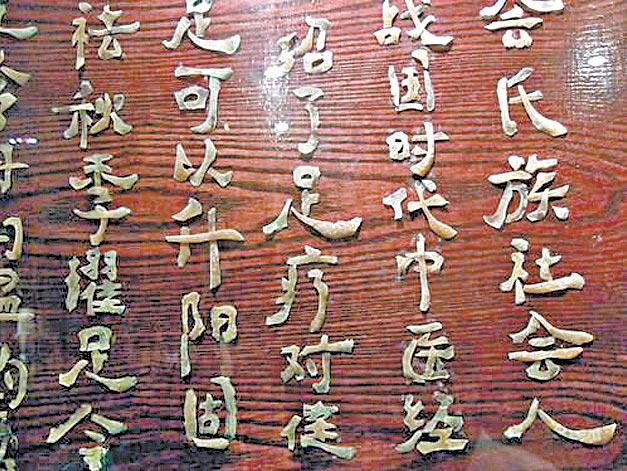 氏族社会人
战国时代中医经
绍了足疗对健
足可以升阳固
祛秋季濯足令